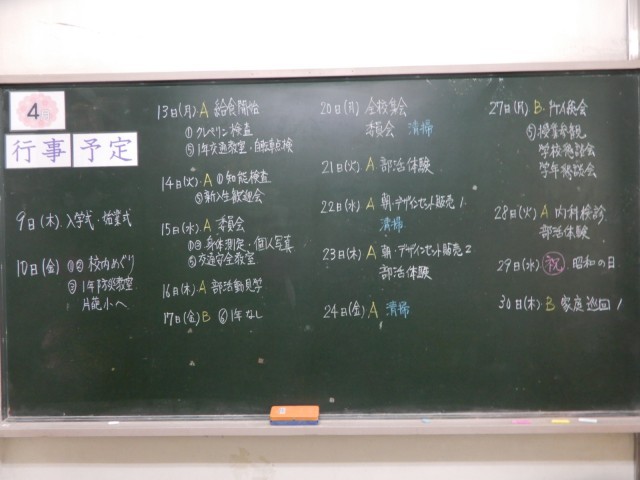 4月
行事予定
9日(木) 入学式・始業式
10日(金) ①② 校内めぐり
③ 1年防災教室
13日(月) A 給食開始
① クレペリン検査
⑤ 1年交通教室・自転車点検
14日(火) A ① 知能検査
⑤ 新入生歓迎会
15日(水) A 委員会
身体測定・個人写真
⑤ 交通安全教室
16日(木) A 部活動見学
17日(金) B ⑥ 1年なし
20日(月) 全校集会
委員会 清掃
21日(火) A 部活体験
22日(水) A 朝・デザインセット販売1
清掃
23日(木) A 朝・デザインセット販売2
部活体験
24日(金) A 清掃
27日(月) B 総会
⑤ 授業参観
学校懇談会
学年懇談会
28日(火) A 内科検診
部活体験
29日(水) 祝 昭和の日
30日(木) B 家庭巡回1